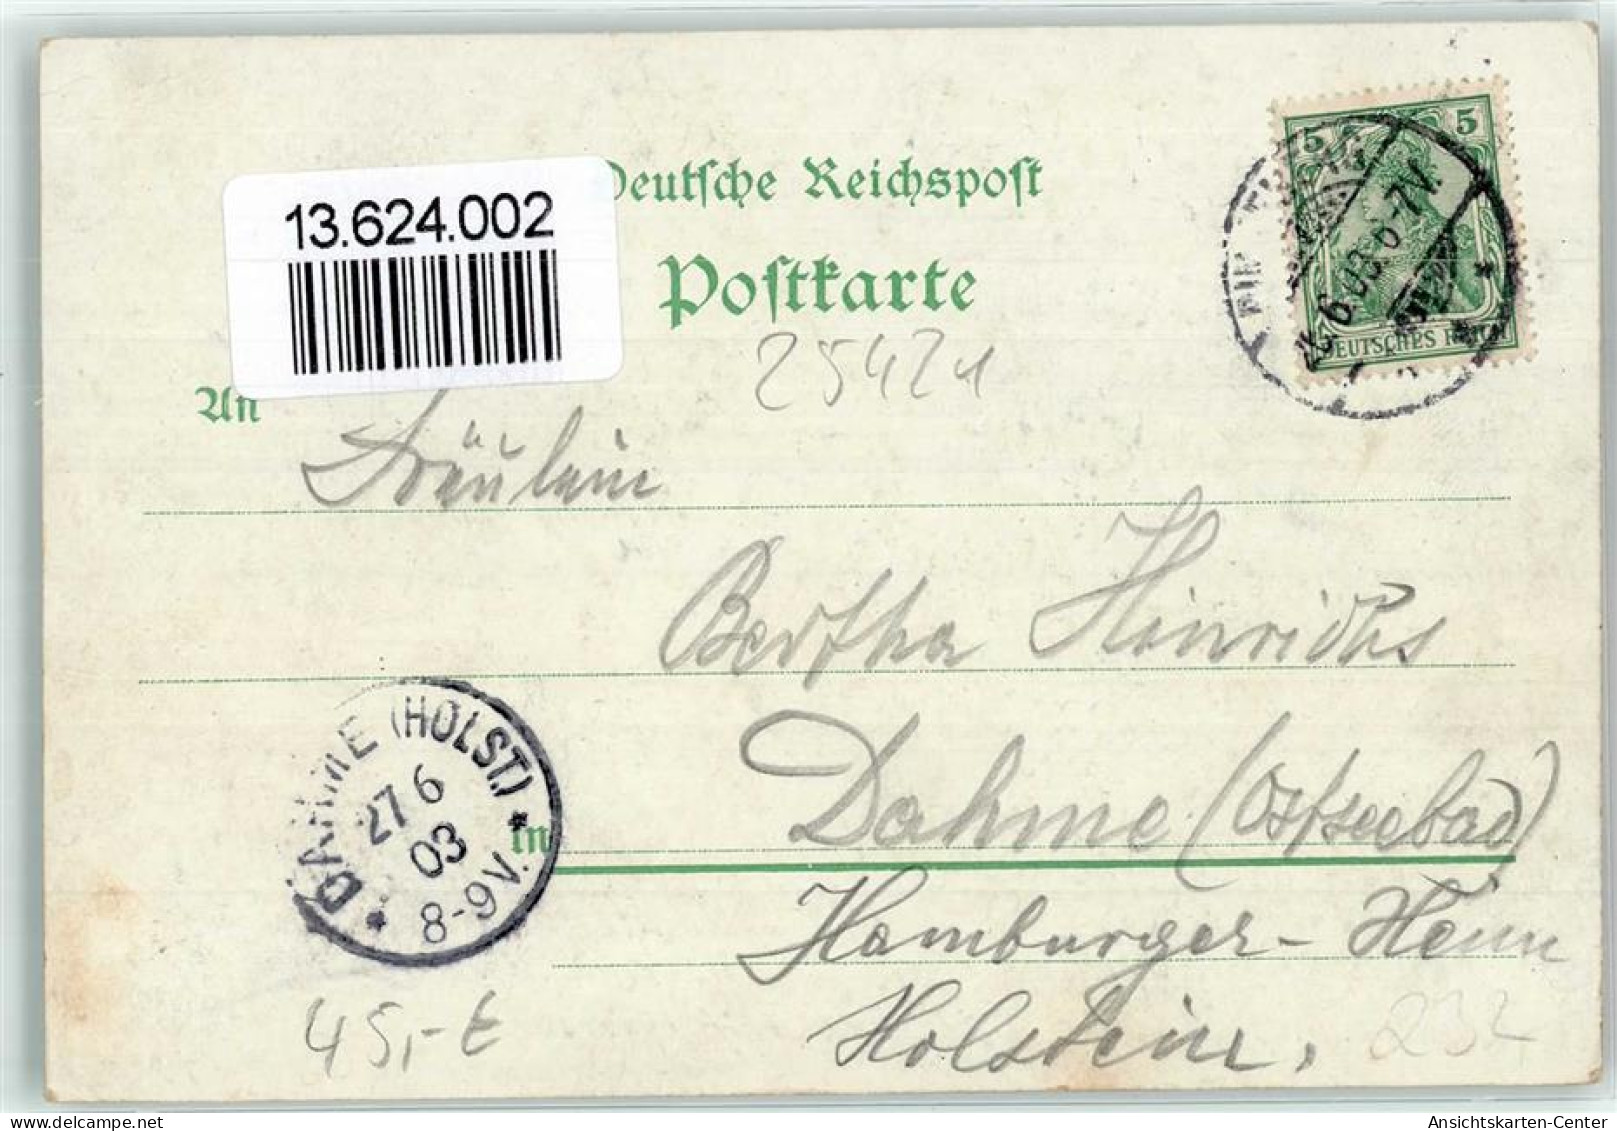 13.624.002
Deutsche Reichspost
Postkarte
25421
An
Fräulein
Bertha Hinrichs
in Dahme (Ostseebad)
Hamburger-Heim
Holstein.
5 5
DEUTSCHES REICH
26.6.03. 6-7V.
DAHME (HOLST.)
27 6
03
8-9V.
45,-€
232
Ansichtskarten-Center